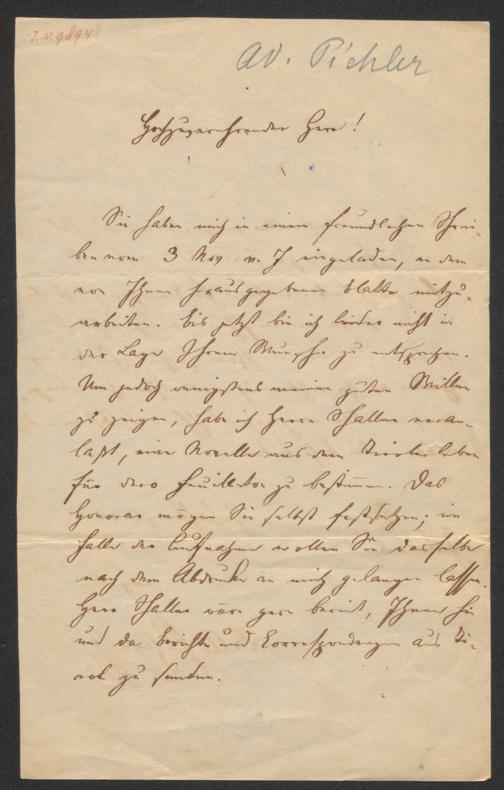 I.N. 9894
Ad. Pichler
Hochzuverehrender Herr!
Sie haben mich in einem freundlichen Schrei-
ben vom 3 Nov v. J eingeladen, an dem
von Ihnen herausgegebenen Blatte mitzu-
arbeiten. Bis jetzt bin ich leider nicht in
der Lage Ihrem Wunsche zu entsprechen.
Um jedoch wenigstens meinen guten Willen
zu zeigen, habe ich Herrn veran-
laßt, eine Novelle aus dem Tiroler leben
für dero Feuilleton zu bestimmen. Das
Honorar mögen Sie selbst festsetzen; im
Falle der Aufnahme wollen Sie dasselbe
nach dem Abdrucke an mich gelangen lassen.
Herr wäre gern bereit, Ihnen hie
und da Berichte und Correspondenzen aus Ti-
rol zu senden.